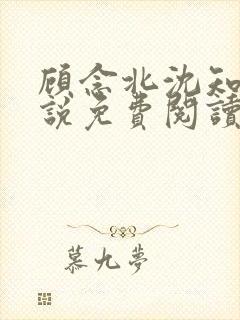 顾念北沈知
說免費閱讀
慕九夢